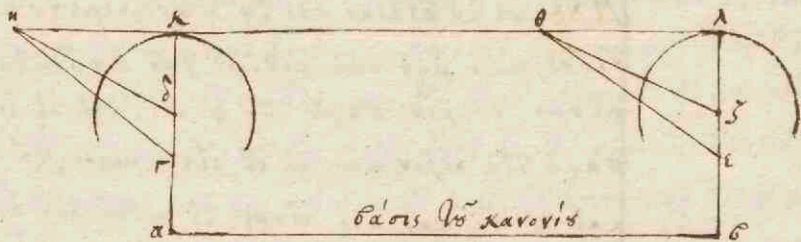 η κ θ λ
δ ζ
γ ε
α βάσις τοῦ κανονίου β